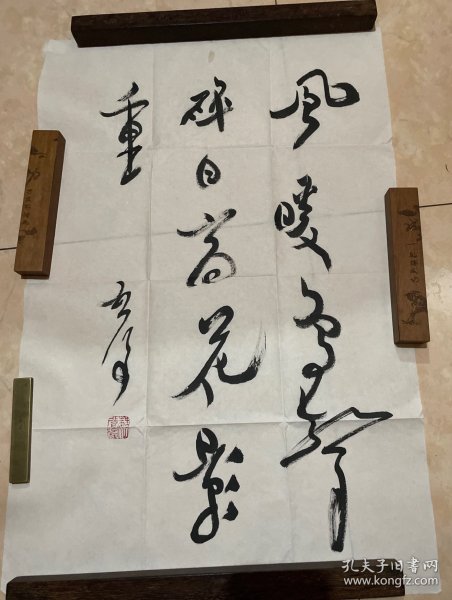 风暖鸟声
碎日高花影
重
孔夫子旧书网
www.kongfz.com